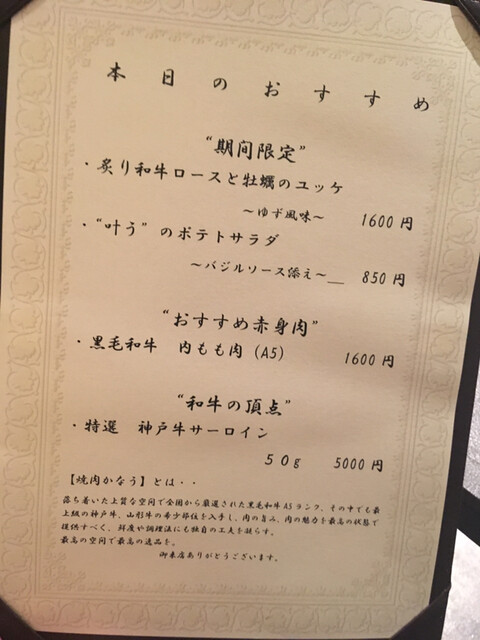 本日のおすすめ
“期间限定”
・炙り和牛ロースと牡蠣のユッケ
～ゆず風味～ 1600円
・“叶う”のポテトサラダ
～バジルソース添え～＿ 850円
“おすすめ赤身肉”
・黒毛和牛 内もも肉(A5) 1600円
“和牛の頂点”
・特選 神戸牛サーロイン
50g 5000円
【焼肉かなう】とは・・
落ち着いた上質な空間で全国から厳選された黒毛和牛A5ランク、その中でも最
上級の神戸牛、山形牛の希少部位を入手し、肉の旨み、肉の魅力を最高の状態で
提供すべく、鮮度や調理法にも独自の工夫を凝らす。
最高の空間で最高の逸品を。
御来店ありがとうございます。